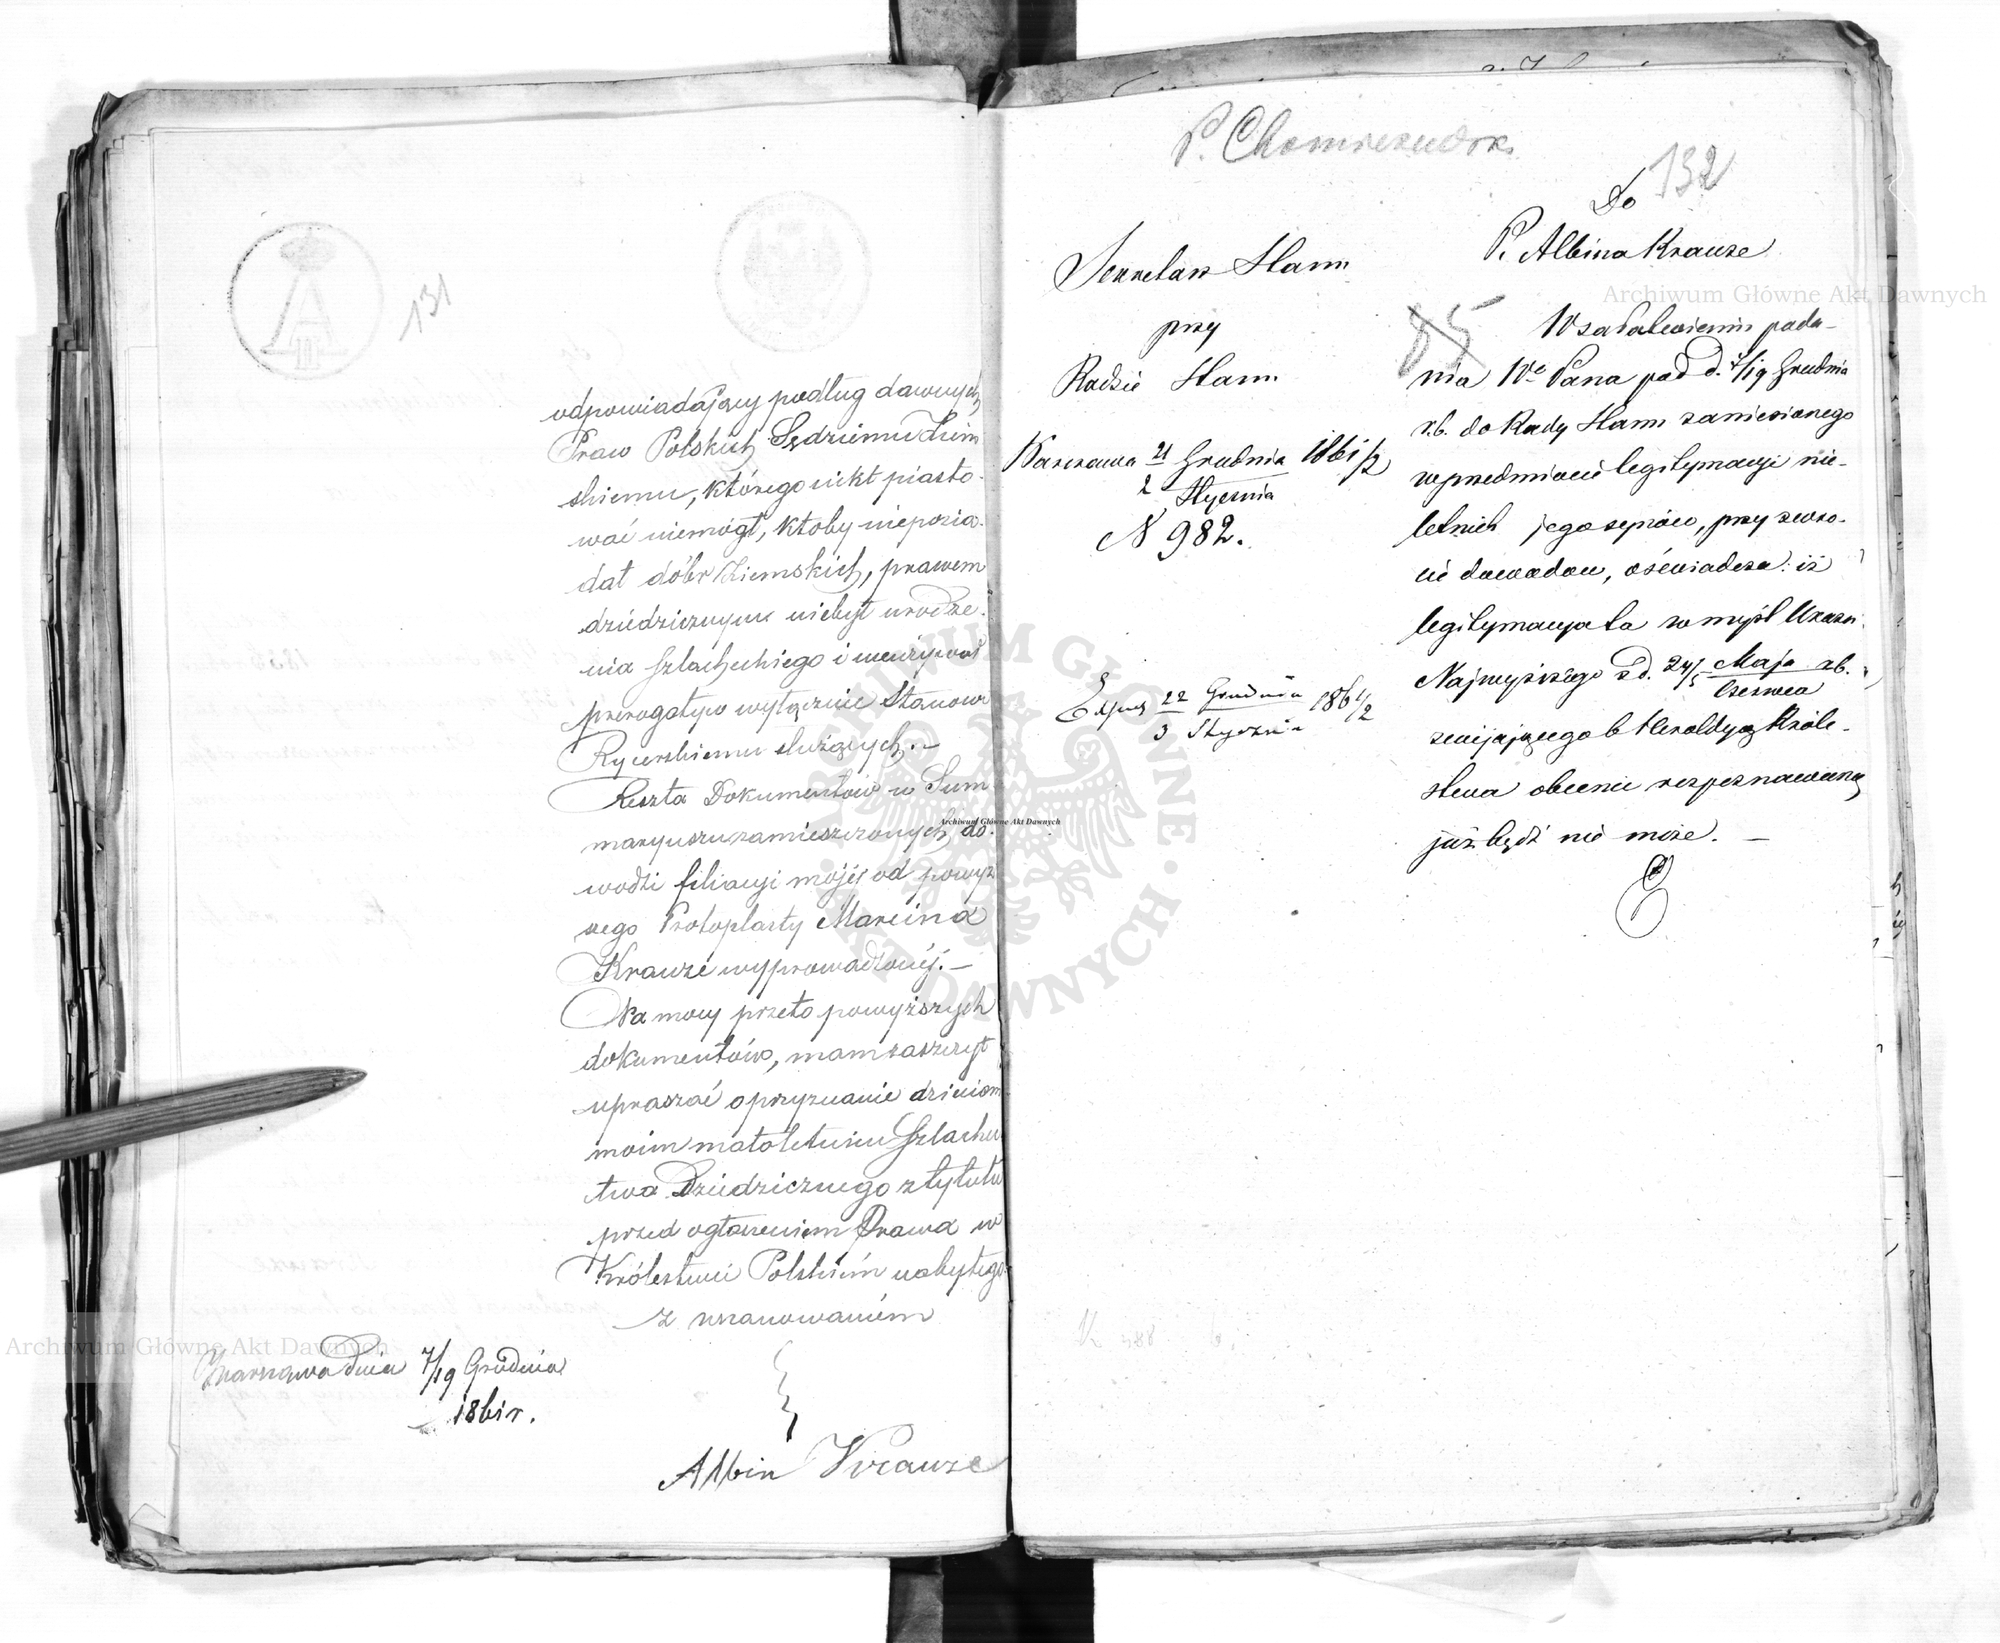 131
odpowiadający podług dawnych
Praw Polskich Sędziemu Ziem
skiemu, którego nikt piasto-
wać niemógł, ktoby nieposia-
dał dóbr Ziemskich, prawem
dziedzicznym niebył urodze-
nia szlacheckiego i nieużywał
prerogatyw wyłącznie Stanowi
Rycerskiemu służących.-
Reszta Dokumentów w Sum-
maryuszu zamieszczonych, do-
wodzi filiacyi mojéj od powyż
szego Protoplasty Marcina
Krauze wyprowadzonéj.-
Na mocy przeto powyższych
dokumentów, mam zaszczyt
upraszać o przyznanie dzieciom
moim małoletnim Szlachec
twa Dziedzicznego z tytułu
przed ogłoszeniem Prawa w
Królestwie Polskiém nabytego
z uszanowaniém
Warszawa dnia 7/19 Grudnia
1861 r.
Albin Krauze
P.
132
Do
P. Albina Krauze
Sekretarz Stanu
przy
Radzie Stanu
Warszawa 21 Grudnia 1861/2
2 Stycznia
N 982.
Exped 22 Grudnia 1861/2
3 Stycznia
85
W załatwieniu poda-
nia We Pana pod d. 7/19 Grudnia
r.b. do Rady Stanu zaniesionego
w przedmiocie legitymacyi nie-
letnich jego synów, przy zwro-
cie dowodów, oświadcza: iż
legitymacya ta w myśl Ukazu
Najwyższego z d. 24/5 Maja r.b.
Czerwca
zwijającego b Heroldyą Króle-
stwa obecnie rozpoznawaną
już bydź nie może. -
Archiwum Główne Akt Dawnych
Archiwum Główne Akt Dawnych
Archiwum Główne Akt Dawnych
ARCHIWUM GŁÓWNE AKT DAWNYCH